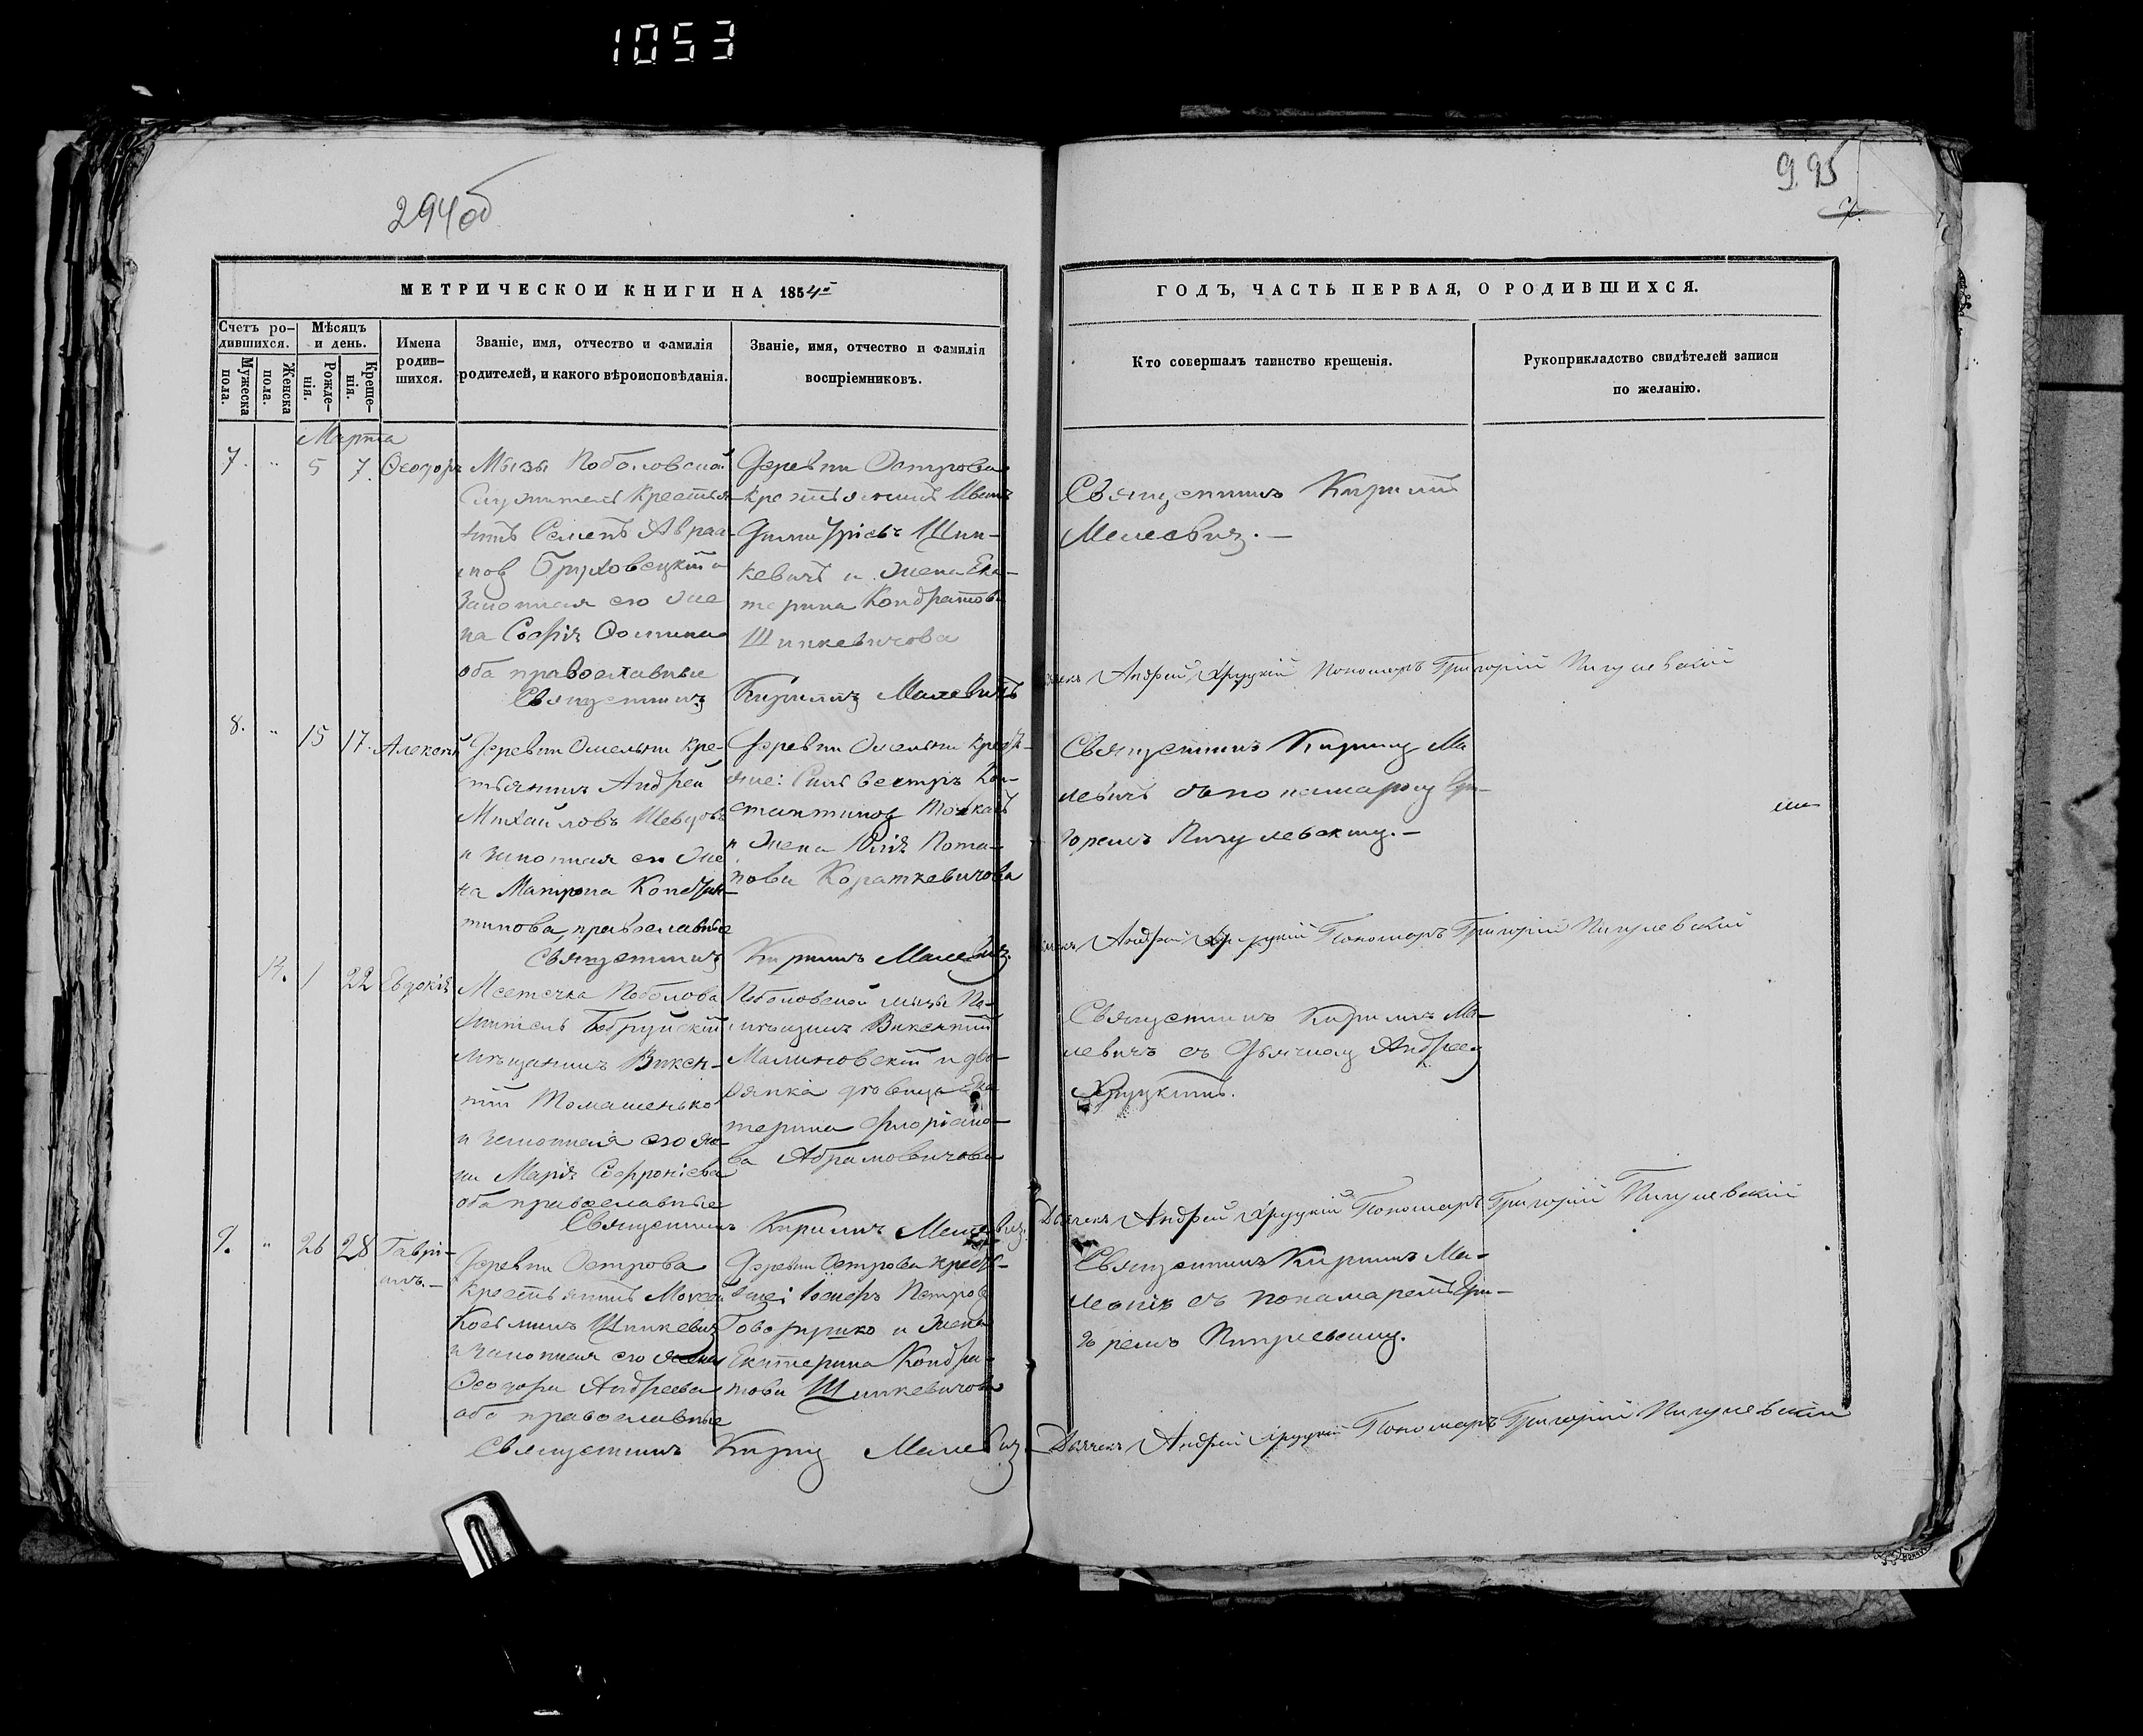 1053
294об
995
МЕТРИЧЕСКОЙ КНИГИ НА 1854й
Счетъ ро-
дившихся.
Мужеска
пола.
Женска
пола.
Мѣсяцъ
и день.
Рожде-
нія.
Креще-
нія.
Имена
родив-
шихся.
Званіе, имя, отчество и фамилія
родителей, и какого вѣроисповѣданія.
Званіе, имя, отчество и фамилія
воспріемниковъ.
ГОДЪ, ЧАСТЬ ПЕРВАЯ, О РОДИВШИХСЯ.
Кто совершалъ таинство крещенія.
Рукоприкладство свидѣтелей записи
по желанію.
Марта
7. " 5 7. Ѳеодоръ
Мызы Поболовской
Служитель Крестья-
нинъ Семенъ Авраа-
мовъ и
законная его же
на Софія Ѳомина
оба православные
Священникъ Кириллъ Малевичъ
Деревни Острова
крестьянинъ Иванъ
Димитріевъ Шин-
кевичъ и жена Ека-
терина Кондратова
Шинкевичова
Священникъ Кириллъ
Малевичъ.—
Андрей Хруцкій Пономарь Григорій Пигулевскій
8. " 15 17. Алексѣй
Деревни Омельни Кре-
стьянинъ Андрей
Михайловъ Шевцовъ
и законная его же
на Матрона Констан-
тинова, православные
Священникъ Кириллъ Малевичъ
Деревни Омельни Кресть-
яне: Сильвестръ Кон-
стантиновъ
и жена Юлія Пота-
пова Короткевичова
Священникъ Кириллъ Ма
левичъ съ пономаремъ Гри-
горемъ Пигулевскимъ.—
Андрей Хруцкій Пономарь Григорій Пигулевскій
1 22 Евдокія
Местечка Поболова
житель Бобруйскій
мѣщанинъ Викен-
тій Томашенько
и законная его же-
на Марія Софроніева
оба православные
Священникъ Кириллъ Малевичъ
Поболовской мызы По-
мѣщикъ Викентій
Малиновскій и дво-
рянка девица Ека
терина Флоріано-
ва Абрамовичова
Священникъ Кириллъ Ма-
левичъ съ Дьячкомъ Андреемъ
Хруцкимъ.
Дьячекъ Андрей Хруцкій Пономарь Григорій Пигулевскій
9. " 26 28 Гаврі-
илъ.—
Деревни Острова
Крестьянинъ Моисей
Косьминъ Шинкевичъ
и законная его жена
Ѳеодора Андреева
оба православные
Священникъ Кириллъ Малевичъ
Деревни Острова кресть-
яне: Іосифъ Петровъ
Говорушко и жена
Екатерина Кондра-
това Шинкевичова
Священникъ Кириллъ Ма-
левичъ съ пономаремъ Гри-
горемъ Пигулевскимъ.
Дьячекъ Андрей Хруцкій Пономарь Григорій Пигулевскій